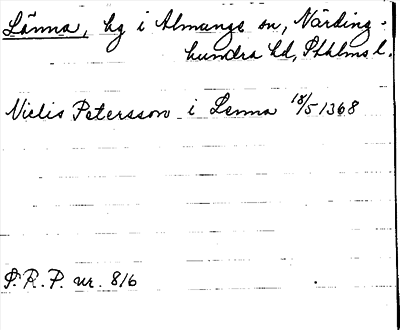 Länna, hg i Almunge sn, Närding-
hundra hd, Sthlms l.
Niclis Petersson i Lenna 18/5 1368
S.R.P. nr. 816